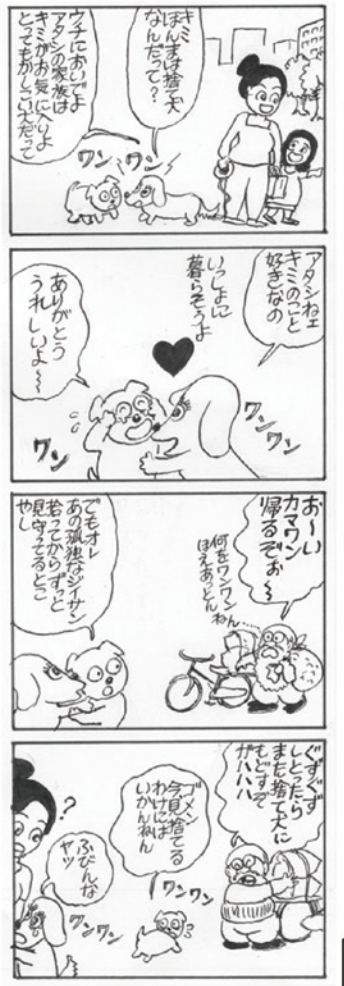 キミ
ほんまは捨て犬
なんだって?
ウチにおいでよ
アタシの家族は
キミがお気に入りよ
とってもかしこい犬だって
ワンワン
アタシねェ
キミのこと
好きなの
いっしょに
暮らそうよ
ありがとう
うれしいよ〜
ワンワン
ワン
お〜い
カマワン
帰るぞぉ〜
何をワンワン
ほえあっとん
ねん…
でもオレ
あの孤独なジイサン
拾ってからずっと
見守ってるとこ
やし
ぐずぐず
しとったら
また捨て犬に
もどすぞ
ガハハハ
ゴメン
今見捨てる
わけには
いかんねん
ワンワン
?
ふびんな
ヤツ
ワンワン